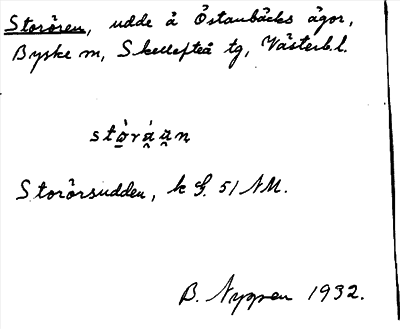 Storören, udde å Östanbäcks ägor,
Byske sn, Skellefteå tg, Västerb. l.
stòráan
Storörsudden, k G. 51 NM.
B. Nyman 1932.